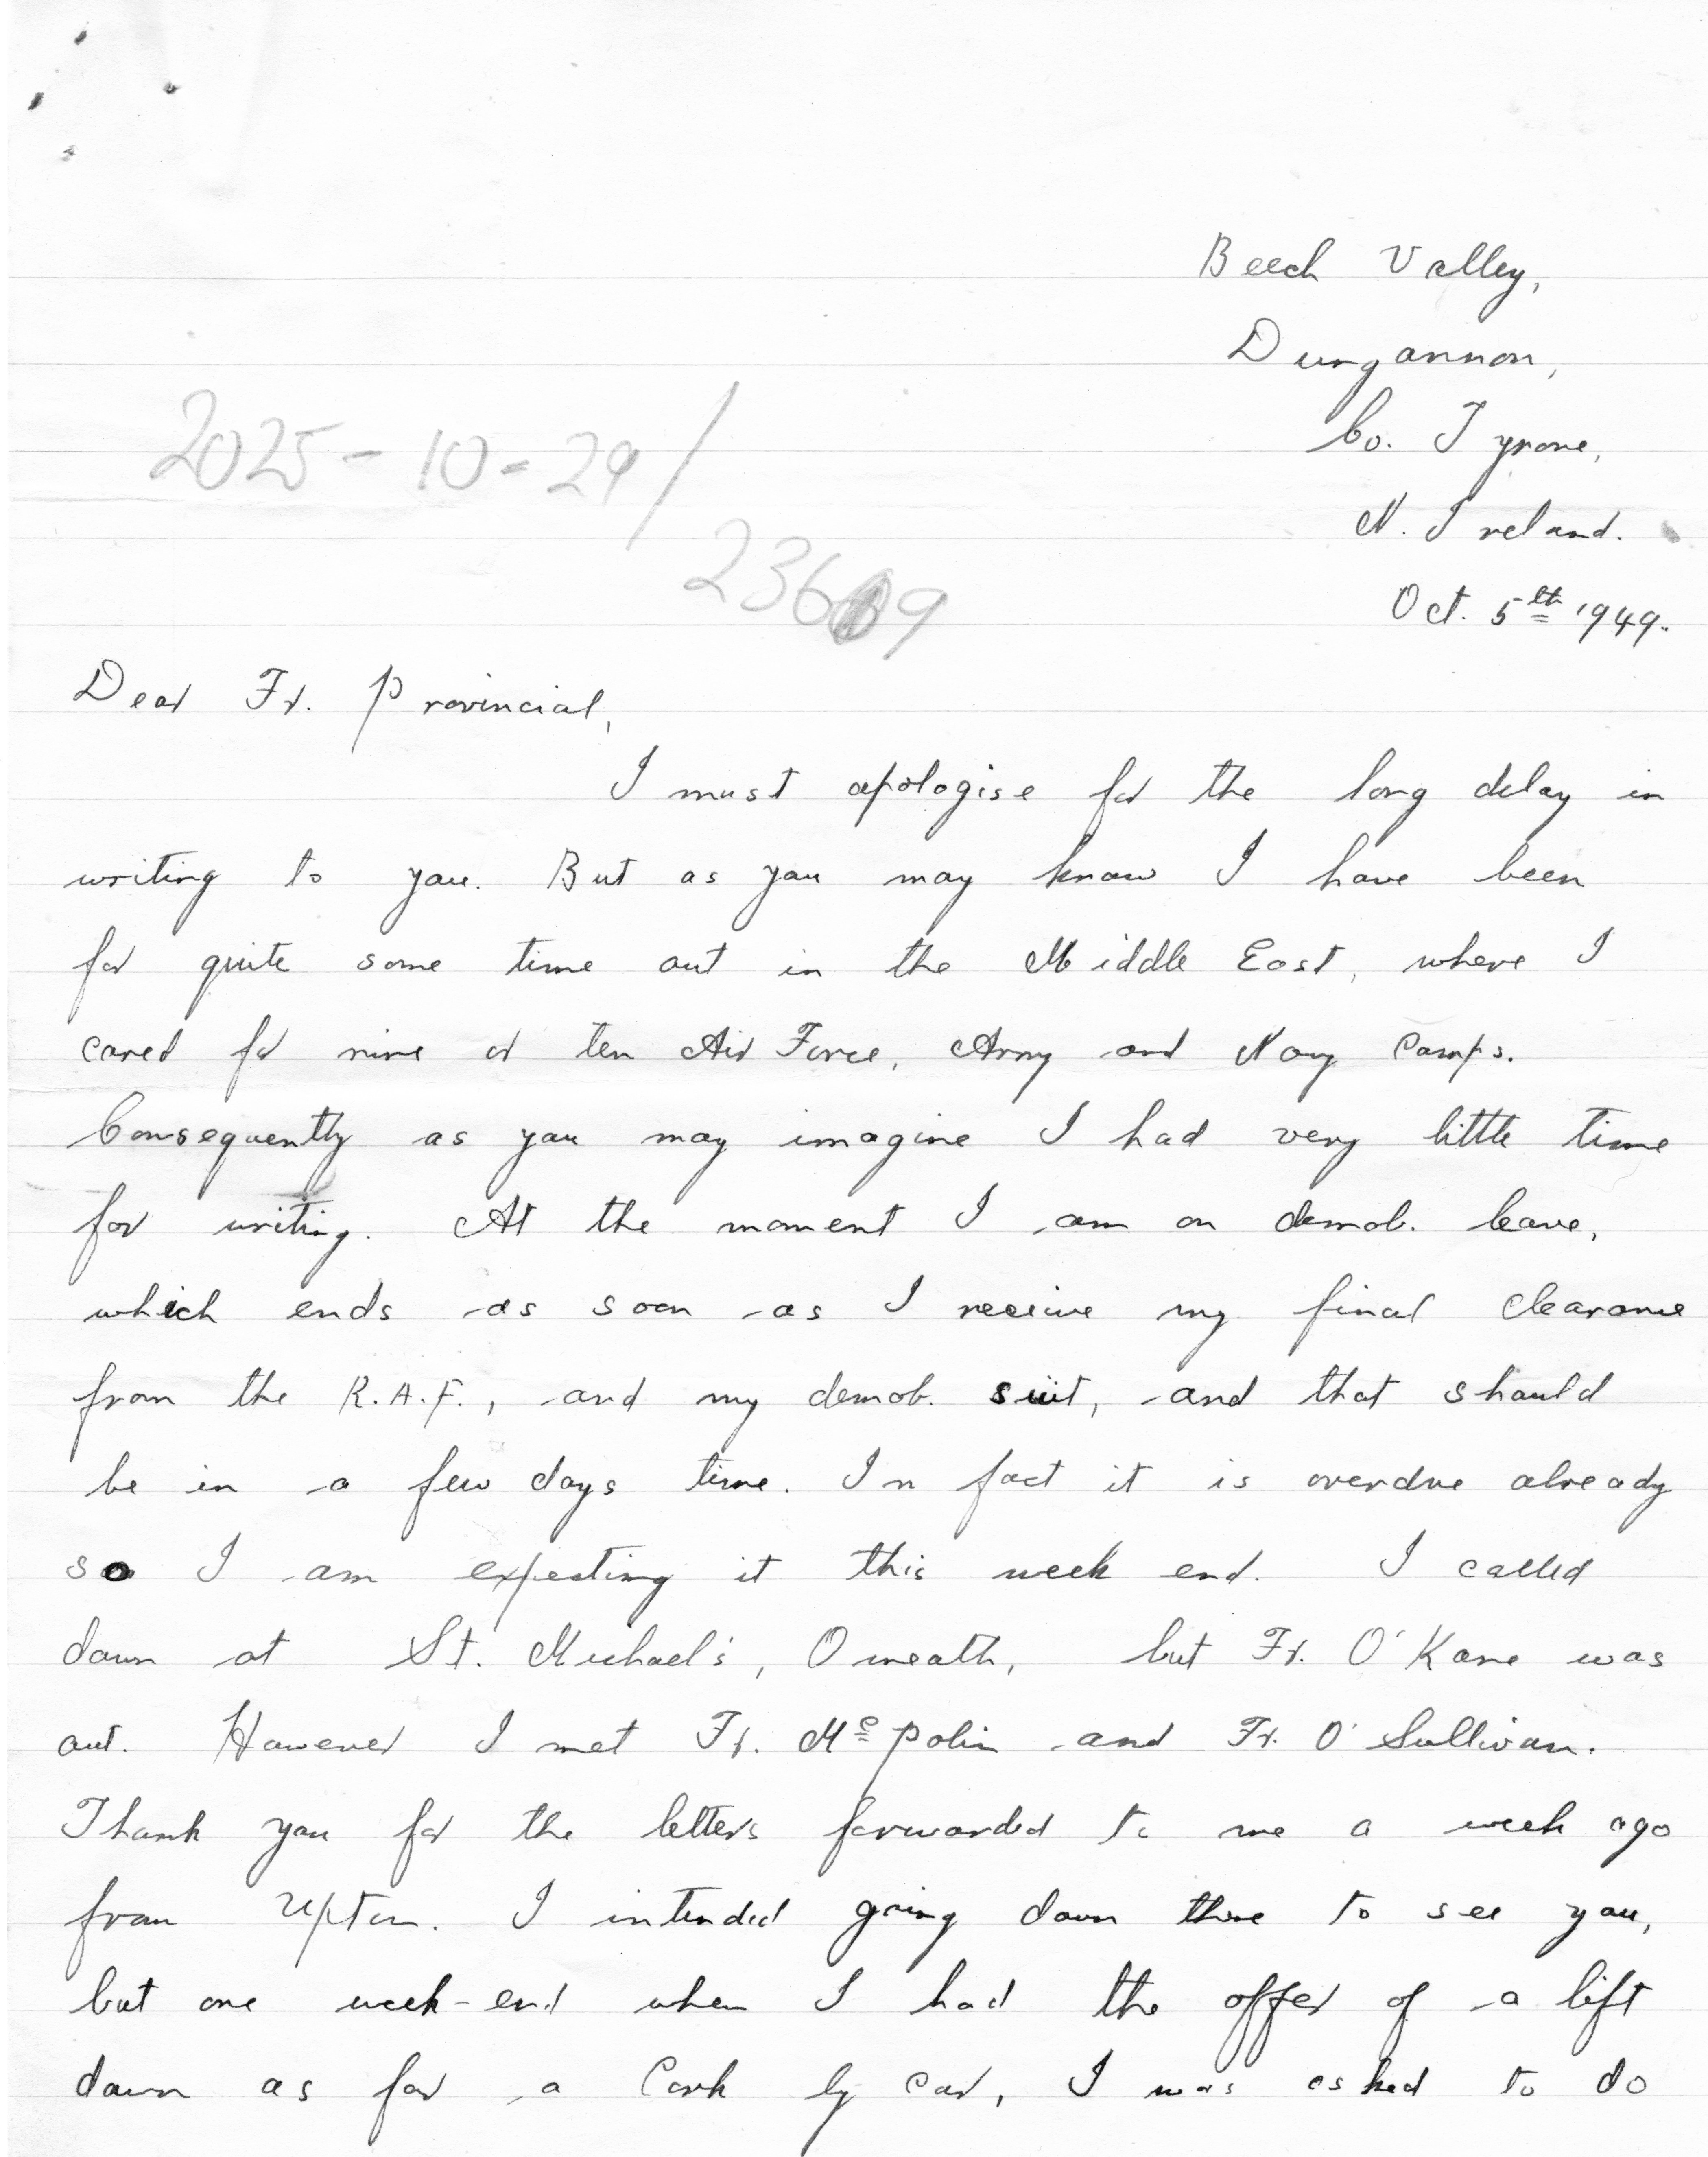 Beech Valley,
Dungannon,
Co. Tyrone,
N. Ireland.
Oct. 5th 1949.
2025-10-29/
23609
Dear Fr. Provincial,
I must apologise for the long delay in
writing to you. But as you may know I have been
for quite some time out in the Middle East, where I
cared for nine or ten Air Force, Army and Navy Camps.
Consequently as you may imagine I had very little time
for writing. At the moment I am on demob. leave,
which ends as soon as I receive my final clearance
from the R.A.F., and my demob. suit, and that should
be in a few days time. In fact it is overdue already
so I am expecting it this week end. I called
down at St. Michael's, Omeath, but Fr. O'Kane was
out. However I met Fr. McPolin and Fr. O'Sullivan.
Thank you for the letters forwarded to me a week ago
from Upton. I intended going down there to see you,
but one week-end when I had the offer of a lift
down as far a Cork by car, I was asked to do